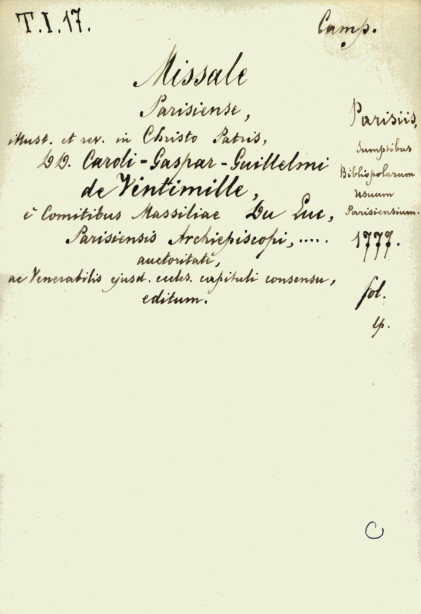 T.I.17.
Camp.
Missale
Parisiense,
illust. et rev. in Christo Patris,
DD. Caroli-Gaspar-Guillelmi
de Ventimille,
è Comitibus Massiliae Du Luc,
Parisiensis Archiepiscopi, .....
auctoritate,
ac Venerabilis ejusd. eccles. capituli consensu,
editum.
Parisiis,
sumptibus
Bibliopolarum
usuum
Parisiensium.
1777.
fol.
lp.
C